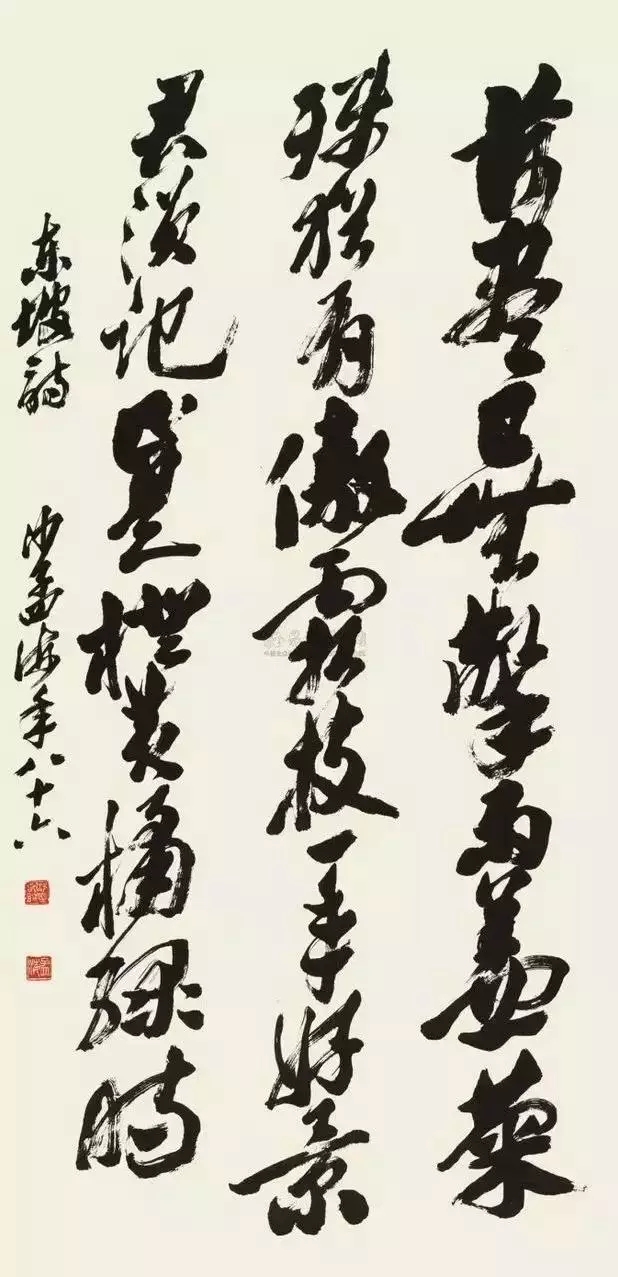 荷盡已無擎雨蓋菊
殘猶有傲霜枝一年好景
君須記最是橙黃橘綠時
東坡詩 沙孟海年八十六